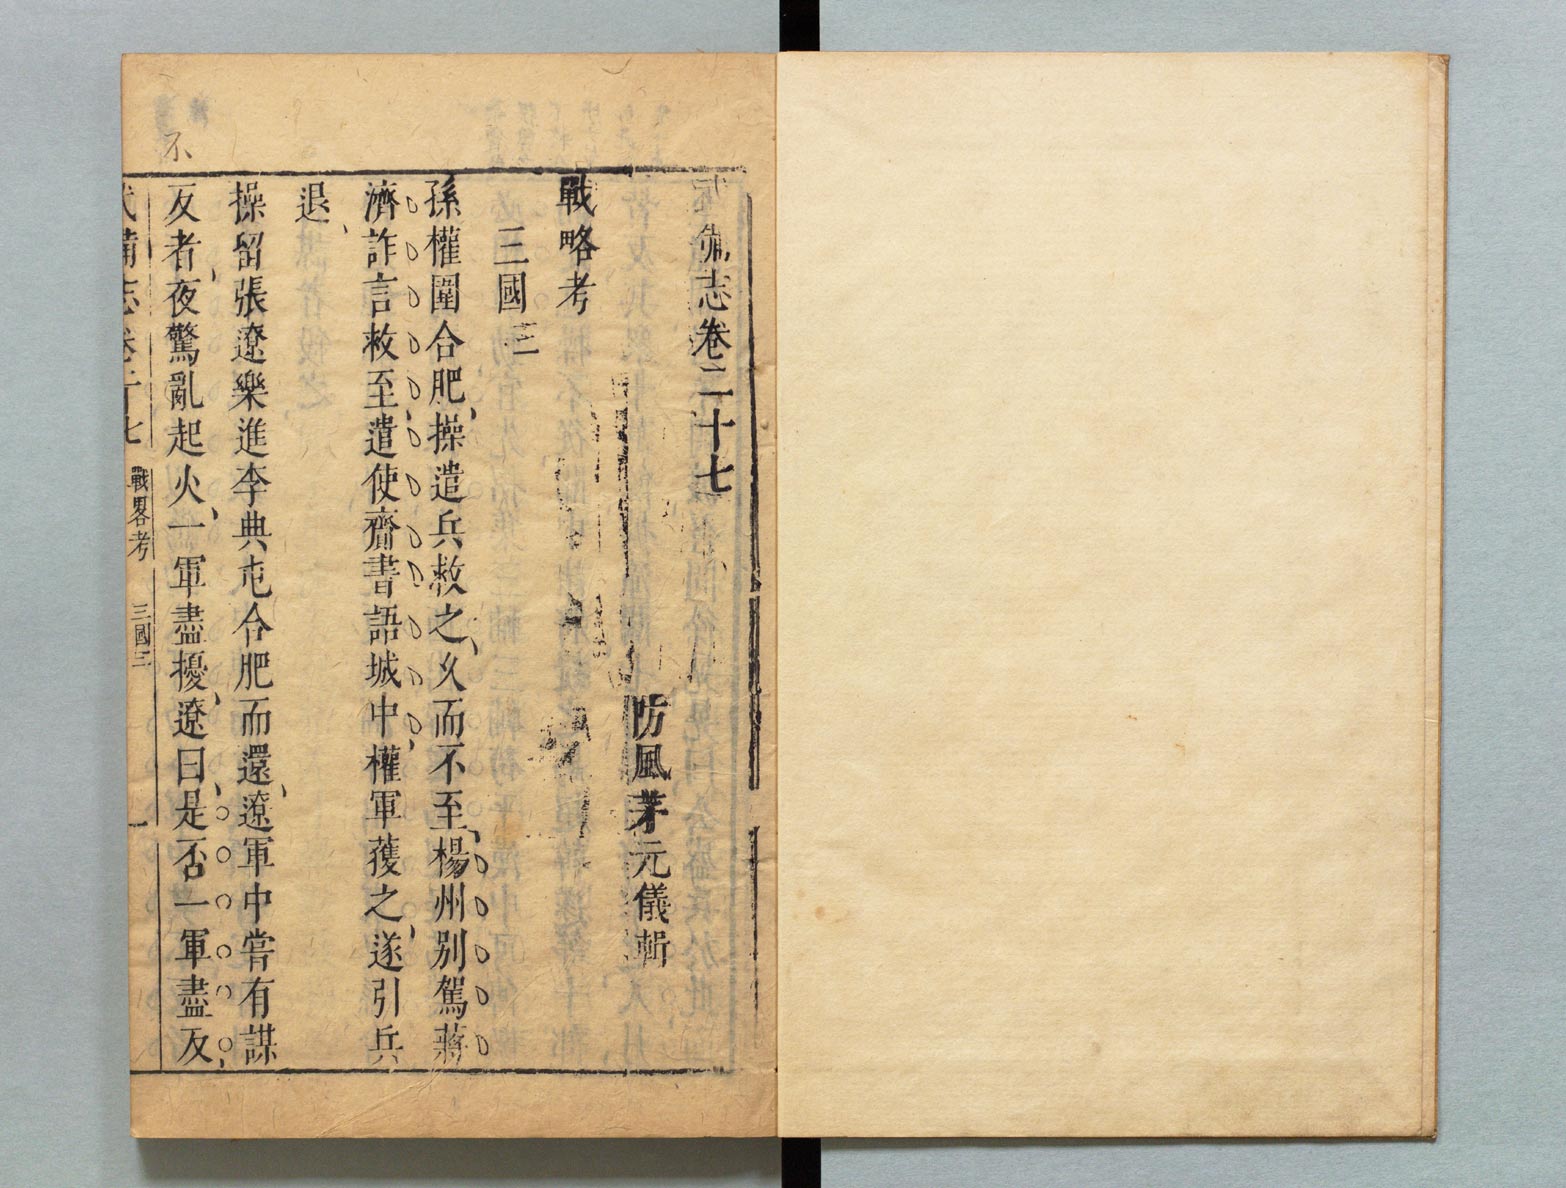 武備志卷二十七
防風茅元儀輯
戰略考
三國三
孫權圍合肥、操遣兵救之、久而不至、楊州別駕蔣
濟詐言救至、遣使齎書語城中、權軍獲之、遂引兵
退、
操留張遼樂進李典屯合肥而還、遼軍中嘗有謀
反者、夜驚亂起火、一軍盡擾、遼曰、是否一軍盡反、
武備志卷二十七 戰畧考 三國三 一
不